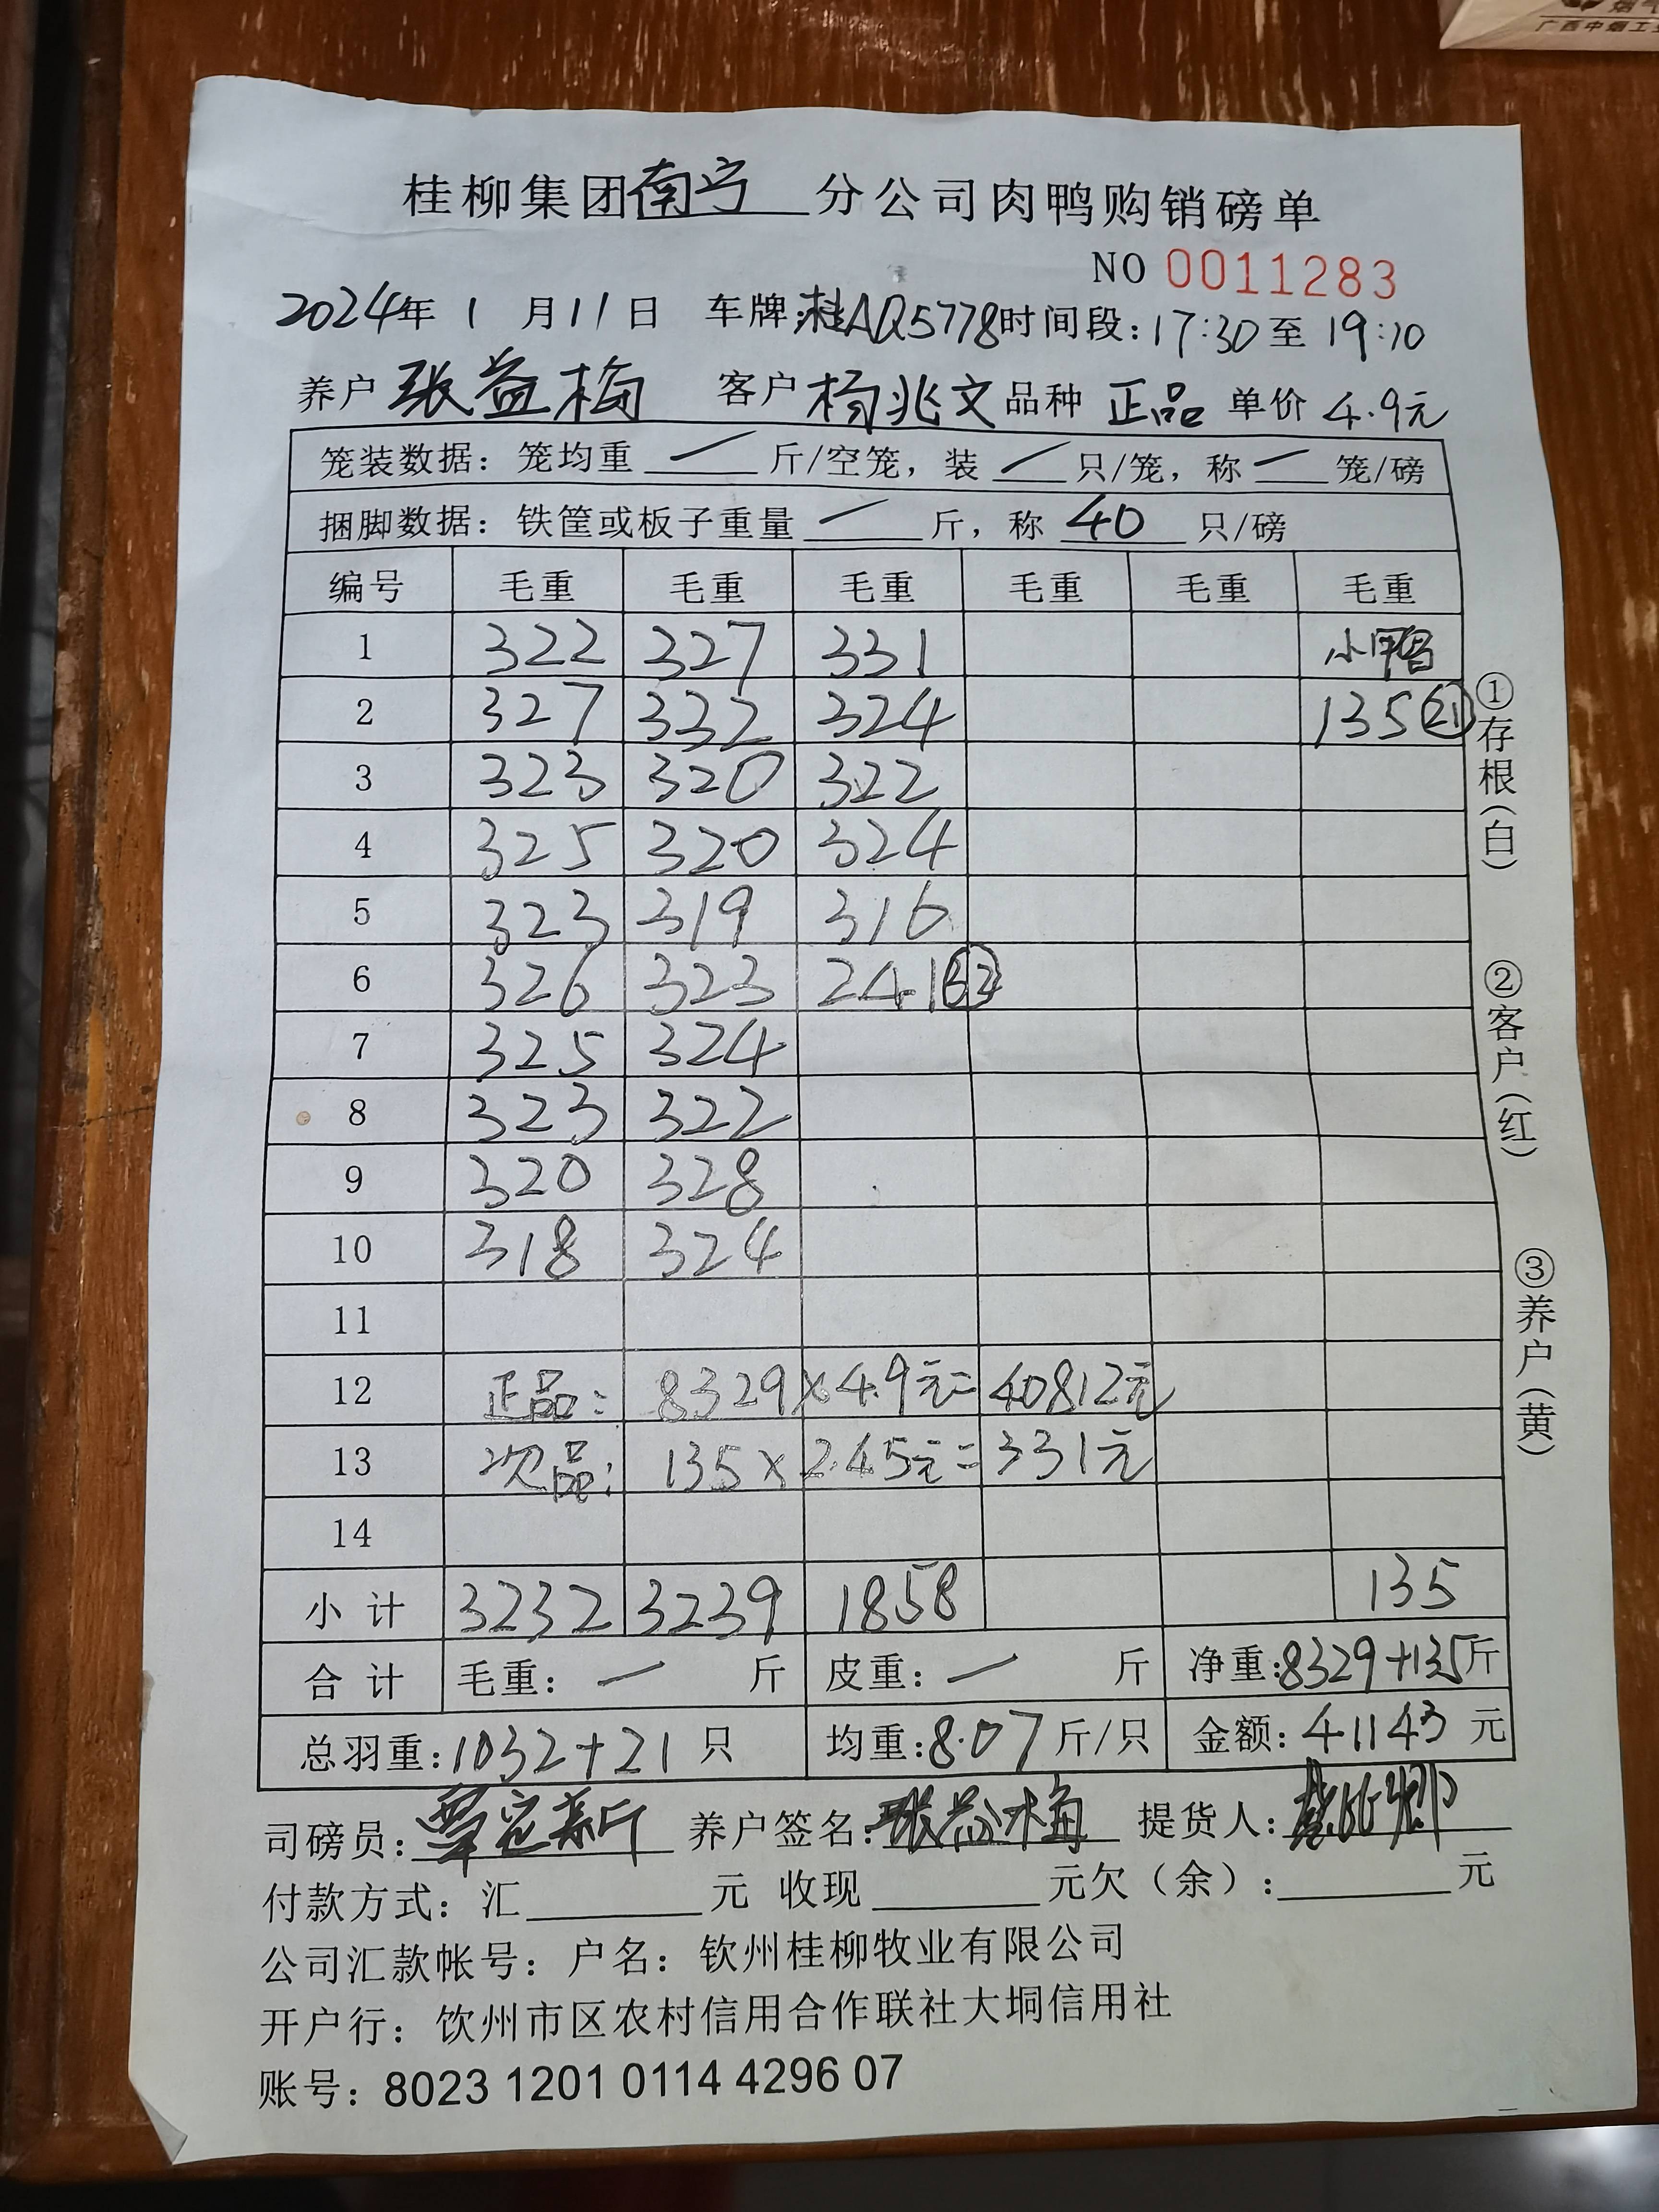 广西中烟工
桂柳集团南宁分公司肉鸭购销磅单
NO 0011283
2024年 1 月11日 车牌:桂AQ5778时间段:17:30至 19:10
养户 张益梅 客户 杨兆文 品种 正品 单价 4.9元
笼装数据: 笼均重 一 斤/空笼, 装 一 只/笼, 称 一 笼/磅
捆脚数据: 铁筐或板子重量 一 斤, 称 40 只/磅
编号 毛重 毛重 毛重 毛重 毛重 毛重
1 322 327 331 小鸭
2 327 332 324 135 (21)
3 323 320 322
4 325 320 324
5 323 319 316
6 326 323 241 (32)
7 325 324
8 323 322
9 320 328
10 318 324
11
12 正品: 8329×4.9元=40812元
13 次品: 135×2.45元=331元
14
小计 3232 3239 1858 135
合计 毛重: 一 斤 皮重: 一 斤 净重:8329+135斤
总羽重:1032+21 只 均重:8.07斤/只 金额: 41143 元
司磅员:覃定新 养户签名:张益梅 提货人:
付款方式: 汇 元 收现 元欠(余): 元
公司汇款帐号: 户名: 钦州桂柳牧业有限公司
开户行: 钦州市区农村信用合作联社大垌信用社
账号: 8023 1201 0114 4296 07
①存根(白)
②客户(红)
③养户(黄)